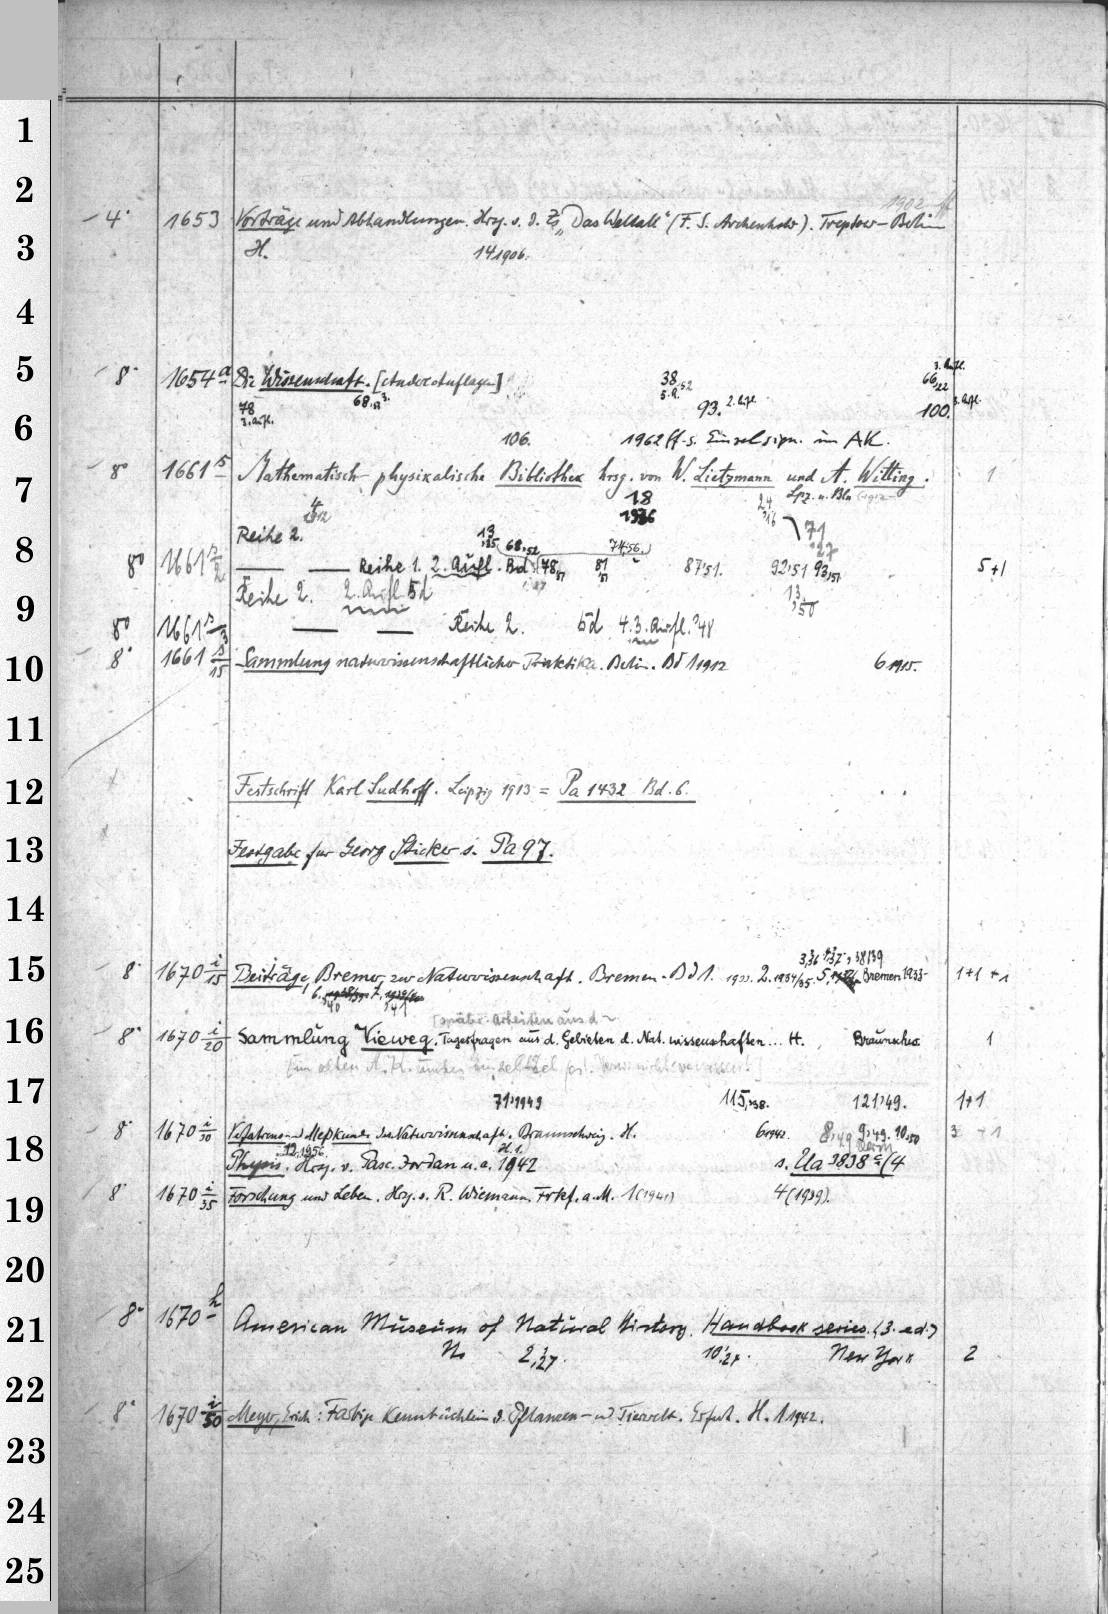 1
2
1902 ff
4° 1653 Vorträge und Abhandlungen. Hrsg. v. d. Zs „Das Weltall“ (F. S. Archenhold). Treptow-Berlin
3
H. 14 1906.
4
5
8° 1654 a Die Wissenschaft. [Andere Auflagen] 38,52 3. Aufl. 66,22
78 2. Aufl. 68,57 3. 5. A. 93. 2. Aufl. 100. 3. Aufl.
6
106. 1962 ff. s. Einzelsign. im AK.
8° 1661 Mathematisch-physikalische Bibliothek hrsg. von W. Lietzmann und A. Witting. 1
7
18 24,16 Lpz. u. Bln
1936
Reihe 2. 13,35 68,52 74,56 71,27
8
8° 1661 — — Reihe 1. 2. Aufl. Bd. 78,51 81,51 87,51. 92,51 93,51 5+1
Reihe 2. 2. Aufl. Bd 13,50
9
8° 1661 — — Reihe 2. Bd 4. 3. Aufl. '48
10
8° 1661 /15 Sammlung naturwissenschaftlicher Praktika. Berlin. Bd 1 1912 6 1915.
11
12
Festschrift Karl Sudhoff. Leipzig 1913 = Pa 1432 Bd. 6.
13
Festgabe für Georg Sticker s. Pa 97.
14
3,36 4,37 38/39
15
8° 1670 i/15 Beiträge, Bremer, zur Naturwissenschaft. Bremen. Bd 1. 1933. 2. 1934/35. 5, Bremen 1933- 1+1 +1
6. 7.
[später: Arbeiten aus d
16
8° 1670 i/20 Sammlung Vieweg. Tagesfragen aus d. Gebieten d. Nat. wissenschaften... H. Braunschw. 1
17
71,1949 115,'38. 121,49. 1+1
8° 1670 i/30 Verfahrens- u Meßkunde der Naturwissenschaft. Braunschweig. H. 6 1942. 8,49 9,49. 10,50 3 +1
12,1956. H. 1.
18
Physis. Hrsg. v. Pasc. Jordan u. a. 1942 s. Ua 3838 c (4
8° 1670 i/35 Forschung und Leben. Hrsg. v. R. Wiemann. Frkf. a. M. 1 (1941) 4 (1939).
19
20
8° 1670 h
21
American Museum of Natural History. Handbook series. (3. ed.)
No 2,'27. 10,'27. New York 2
22
8° 1670 i/50 Meyer, Erich: Farbige Kennbüchlein d. Pflanzen- u Tierwelt. Erfurt. H. 1 1942.
23
24
25